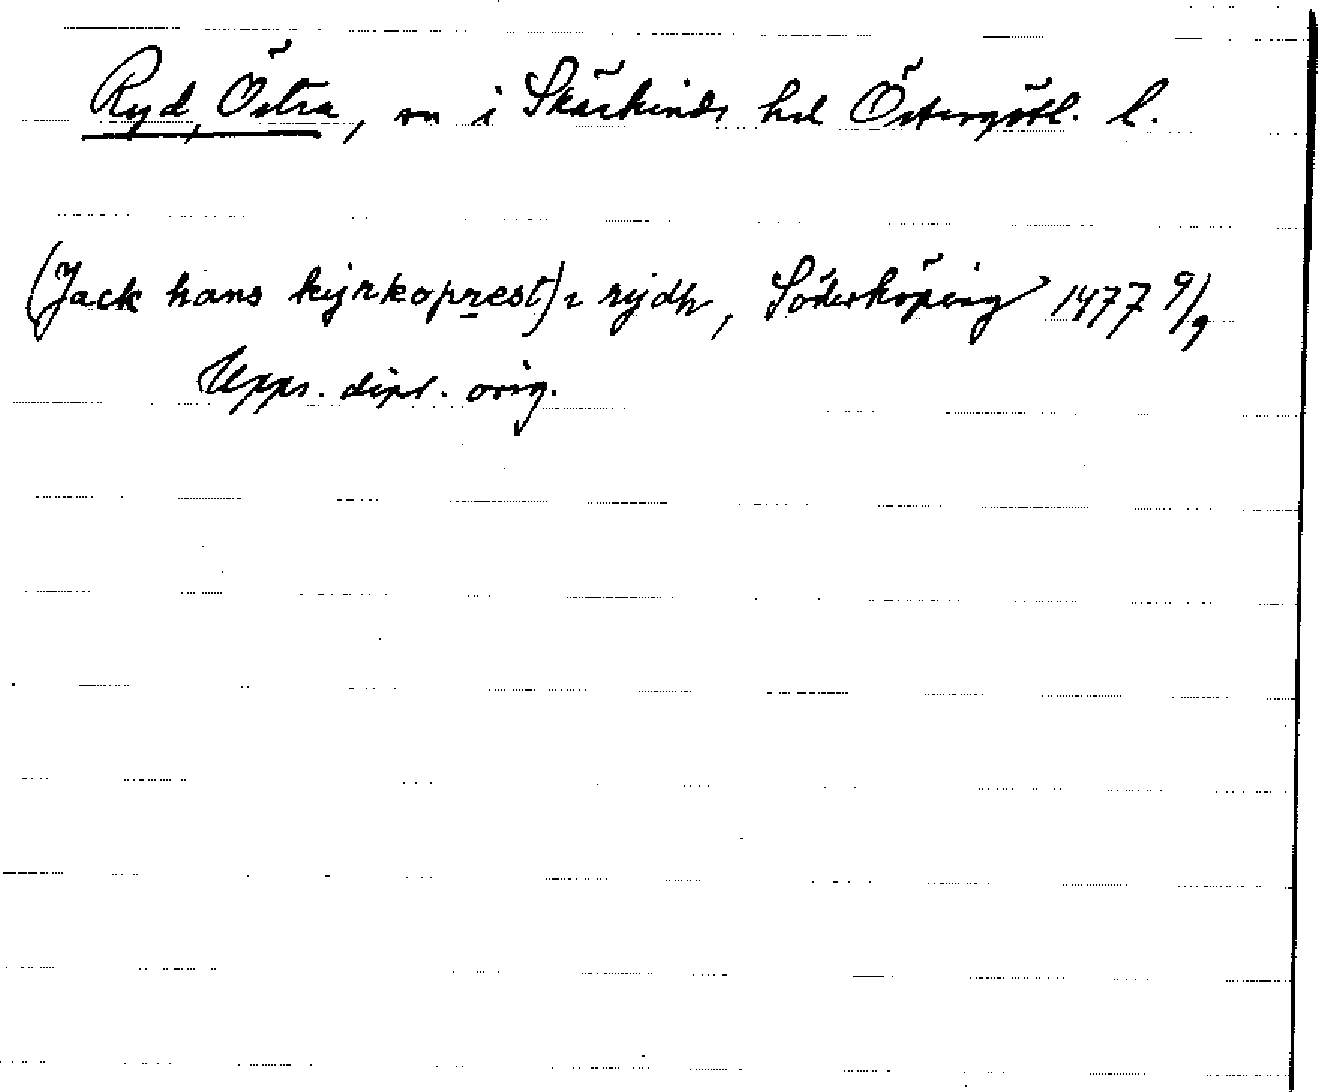 Ryd, Östra, sn i Skärkinds hd Östergötl. l.
(Jack hans kyrkoprest) i rydh, Söderköping 1477 9/9
Upps. dipl. orig.